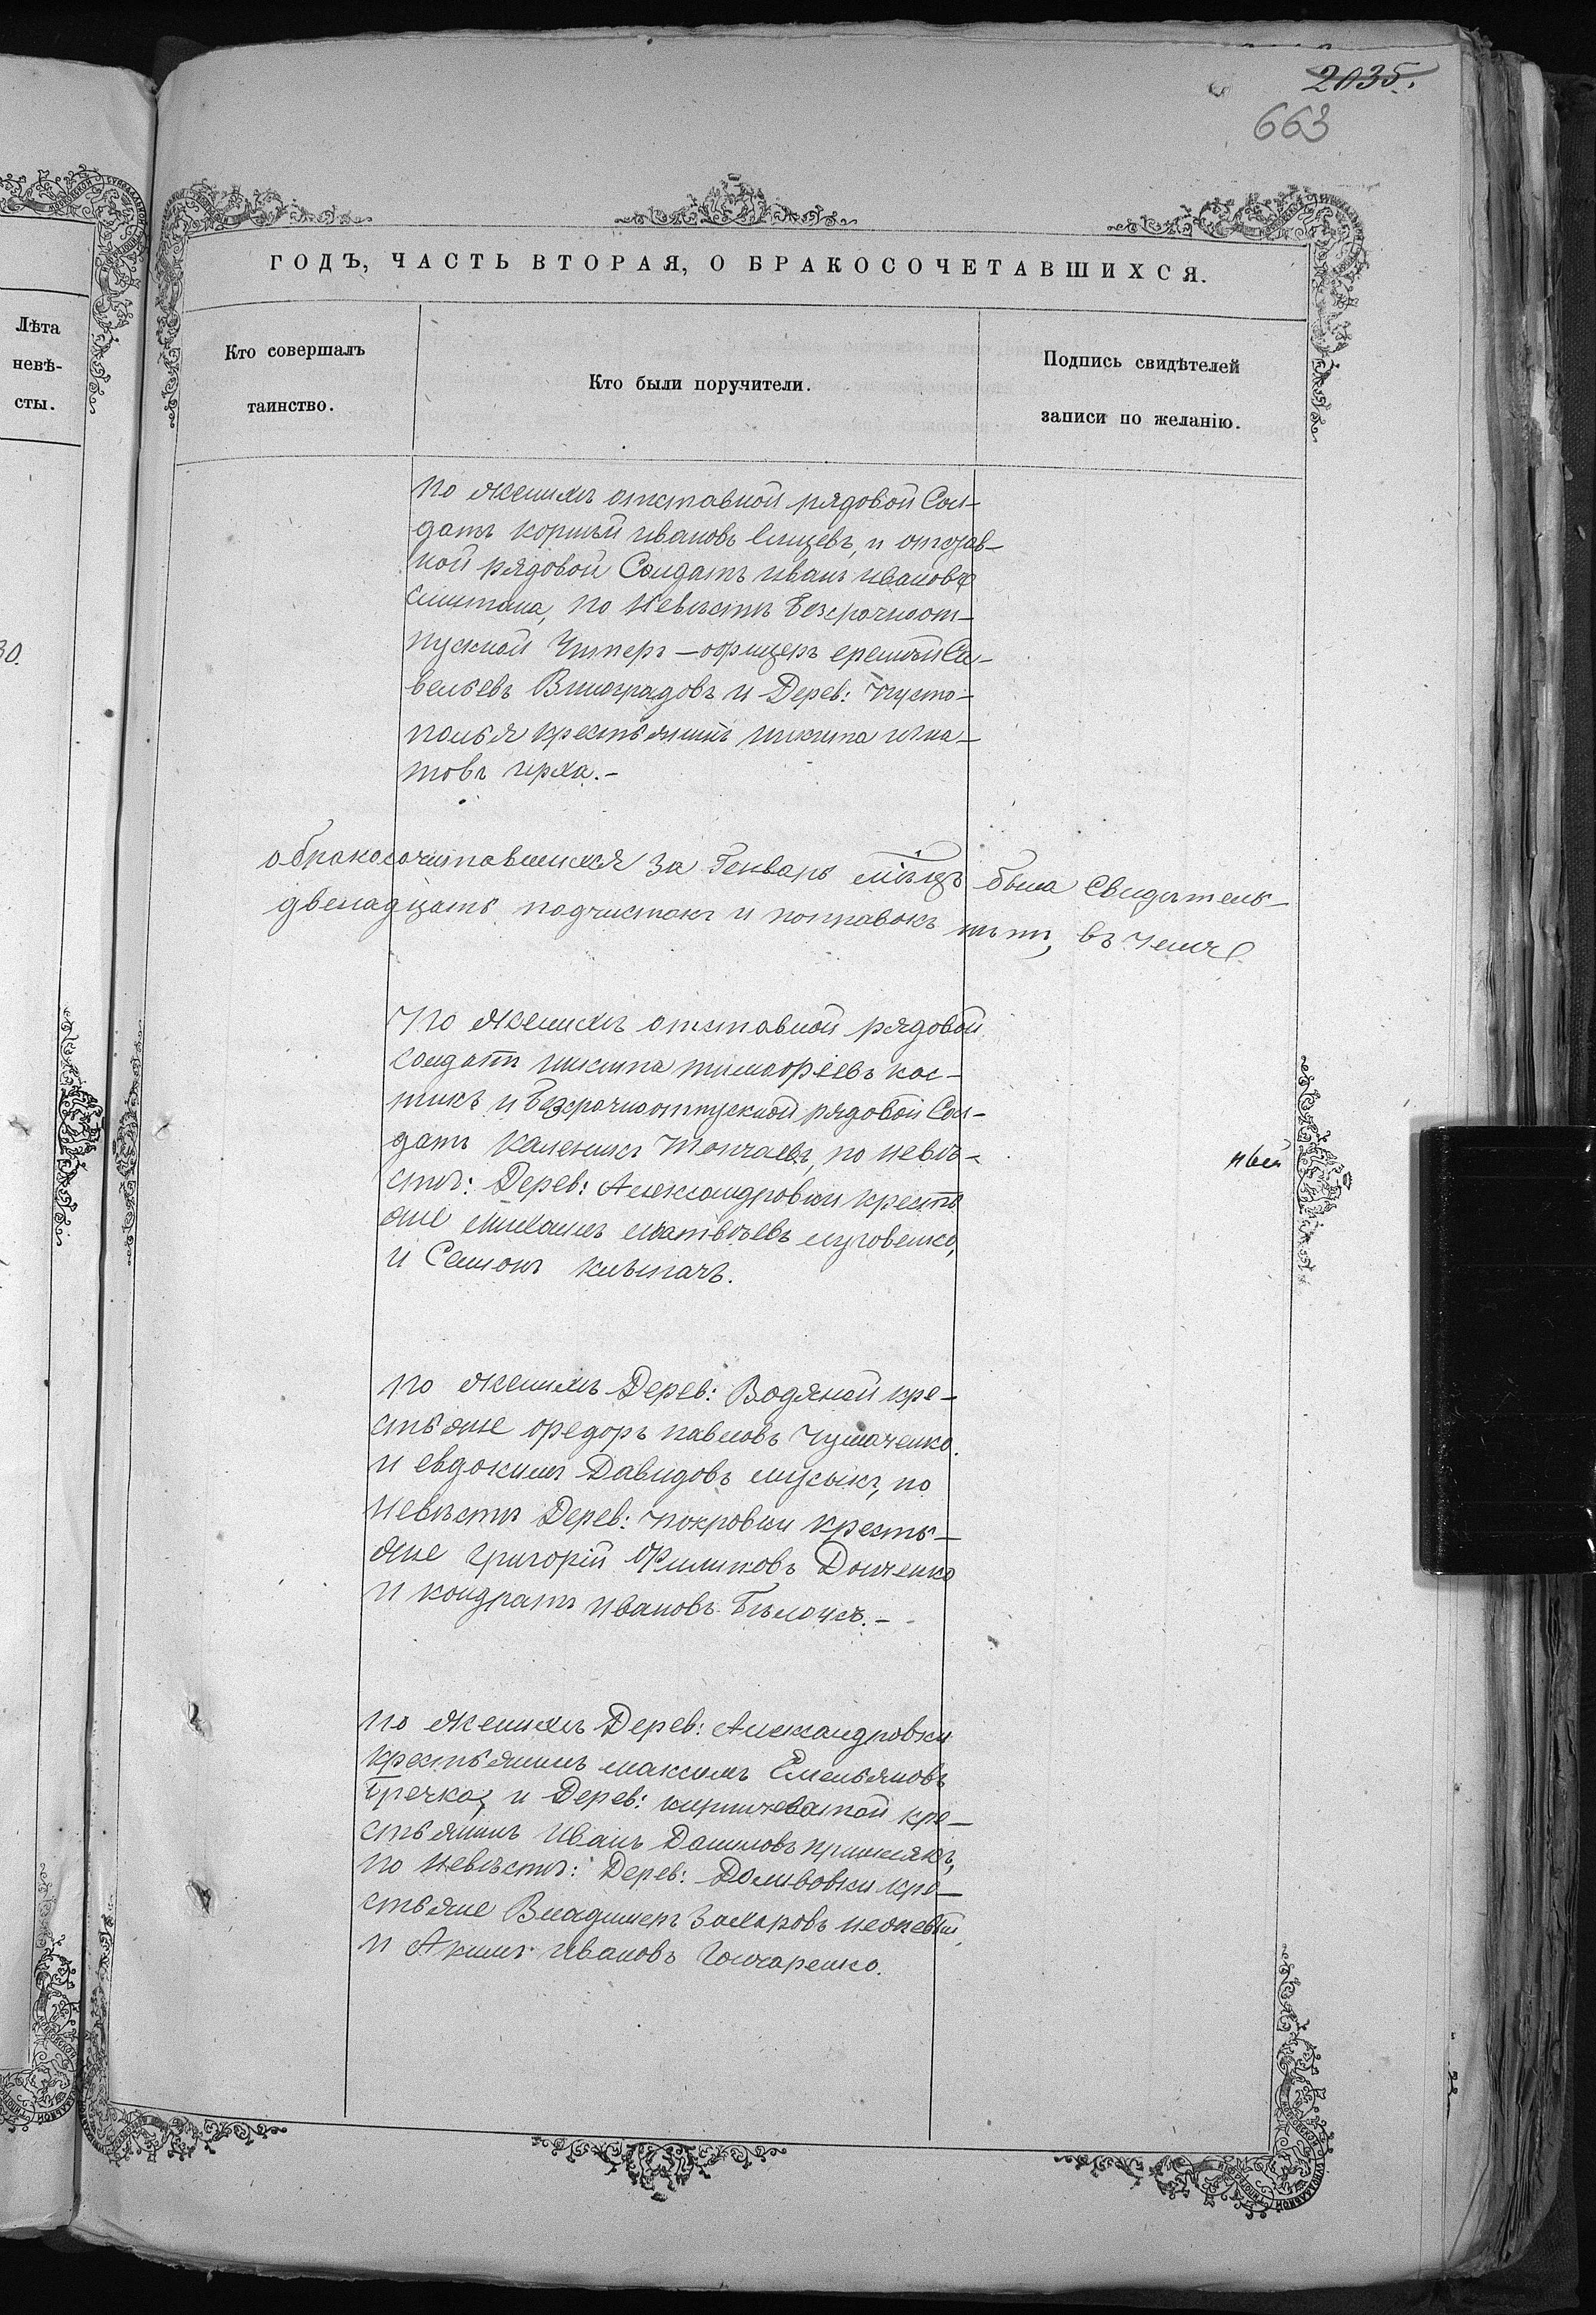 2035.
663
ГОДЪ, ЧАСТЬ ВТОРАЯ, О БРАКОСОЧЕТАВШИХСЯ.
Лѣта
невѣ-
сты.
Кто совершалъ
таинство.
Кто были поручители.
Подпись свидѣтелей
записи по желанію.
30.
По женихѣ отставной рядовой Сол-
датъ Ивановъ и отстав-
ной рядовой Солдатъ Иванъ Ивановъ
Сметана, по Невѣстѣ безсрочноот-
пускной Унтеръ-офицеръ Са-
вельевъ Виноградовъ и Дерев: Пусто-
полья крестьянинъ Никита Игна-
товъ
о бракосочитавшихся за Генварь мѣсяцъ была Свидѣтель-
двенадцать подчистокъ и поправокъ нѣтъ, въ чемъ
По женихѣ отставной рядовой
солдатъ Никита Тимофѣевъ Кос-
тикъ и Безсрочноотпускной рядовой Сол-
датъ Каленикъ по невѣ-
стѣ: Дерев: Александровки кресть
яне Михаилъ Матвѣевъ Луговенко,
и Семонъ
По женихѣ Дерев: Водяной кре-
стьяне Федоръ Павловъ Чумаченко
и Евдокимъ Давидовъ по
Невѣстѣ Дерев: Покровки кресть-
яне Григорій Филиповъ Донченко
и Кондратъ Ивановъ
По женихѣ Дерев: Александровки
крестьянинъ Максимъ Емельяновъ
Гречка, и Дерев: Кирпичеватой кре-
стьянинъ Иванъ Даниловъ
по Невѣстѣ: Дерев: Доливовки кре-
стьяне Владимеръ Захаровъ
и Акимъ Ивановъ Гончаренко.